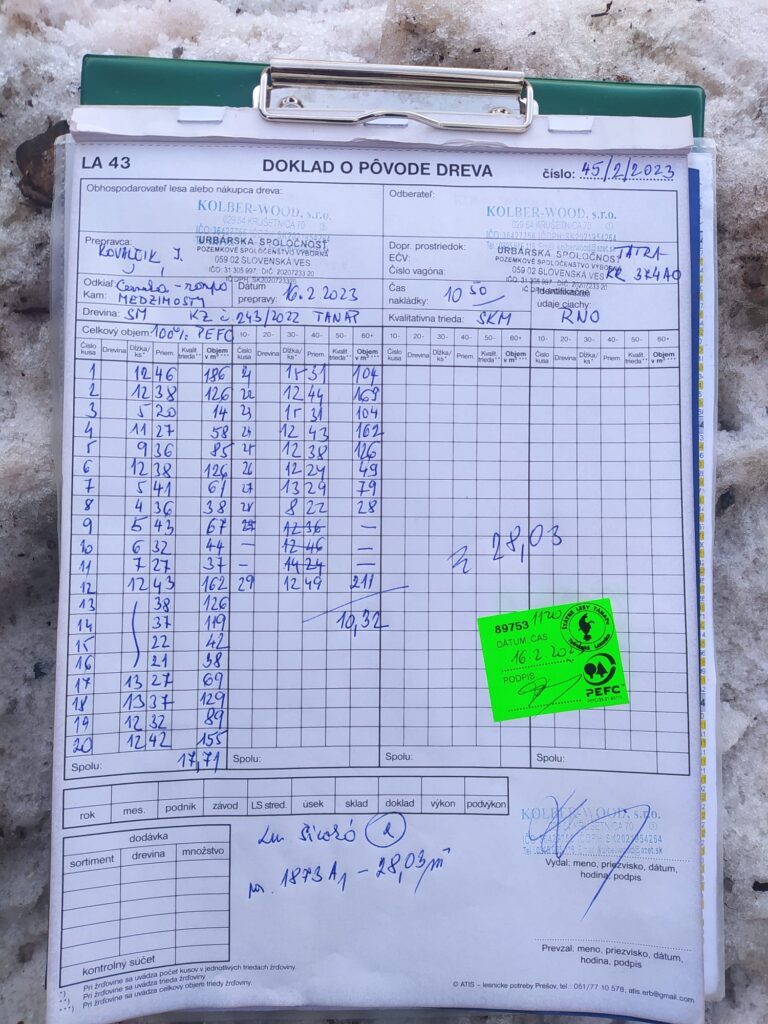 LA 43 DOKLAD O PÔVODE DREVA číslo: 45/2/2023
Obhospodarovateľ lesa alebo nákupca dreva: Odberateľ:
KOLBER-WOOD, s.r.o. KOLBER-WOOD, s.r.o.
029 64 KRUŠETNICA 70
Prepravca: KOVALČIK J. Dopr. prostriedok: TATRA
URBÁRSKA SPOLOČNOSŤ URBÁRSKA SPOLOČNOSŤ
POZEMKOVÉ SPOLOČENSTVO VÝBORNÁ EČV:
059 02 SLOVENSKÁ VES 059 02 SLOVENSKÁ VES
Číslo vagóna: KK 374AO
Odkiaľ Dátum Čas Identifikačné
Kam: MEDZIMOSTY prepravy: 16.2.2023 nakládky: 10 50 údaje ciachy:
Drevina: SM KZ č. 243/2022 TANAP Kvalitatívna trieda: ŠKM RNO
Celkový objem: 100% PEFC 10- 20- 30- 40- 50- 60+ 10- 20- 30- 40- 50- 60+ 10- 20- 30- 40- 50- 60+
Číslo kusa Drevina Dĺžka/ks* Priem. Kvalit. trieda** Objem v m³*** Číslo kusa Drevina Dĺžka/ks* Priem. Kvalit. trieda** Objem v m³*** Číslo kusa Drevina Dĺžka/ks* Priem. Kvalit. trieda** Objem v m³*** Číslo kusa Drevina Dĺžka/ks* Priem. Kvalit. trieda** Objem v m³***
1 12 46 186 21 15 31 104
2 12 38 126 22 12 44 169
3 5 20 14 23 15 31 104
4 11 27 58 24 12 43 162
5 9 36 85 25 12 38 126
6 12 38 126 26 12 24 49
7 5 41 61 27 13 29 79
8 4 36 38 28 8 22 28
9 5 43 67 29 12 36 —
10 6 32 44 — 12 46 —
11 7 27 37 — 14 24 —
12 12 43 162 29 12 49 211
13 38 126
14 37 119 10,32
15 22 42
16 21 38
17 13 27 69
18 13 37 129
19 12 32 89
20 12 42 155
Spolu: 17,71 Spolu: Spolu: Spolu:
28,03
89753 1120
DÁTUM ČAS
16.2.2023
PODPIS
ŠTÁTNE LESY TANAPU
PEFC
rok mes. podnik závod LS stred. úsek sklad doklad výkon podvýkon
dodávka
sortiment drevina množstvo
kontrolný súčet
1873 A1 – 28,03 m³
KOLBER-WOOD, s.r.o.
Vydal: meno, priezvisko, dátum,
hodina, podpis
Prevzal: meno, priezvisko, dátum,
hodina, podpis
*) Pri žrďovine sa uvádza počet kusov v jednotlivých triedach žrďoviny.
**) Pri žrďovine sa uvádza trieda žrďoviny.
***) Pri žrďovine sa uvádza celkový objem triedy žrďoviny.
© ATIS – lesnícke potreby Prešov, tel.: 051/77 10 578, atis.erb@gmail.com